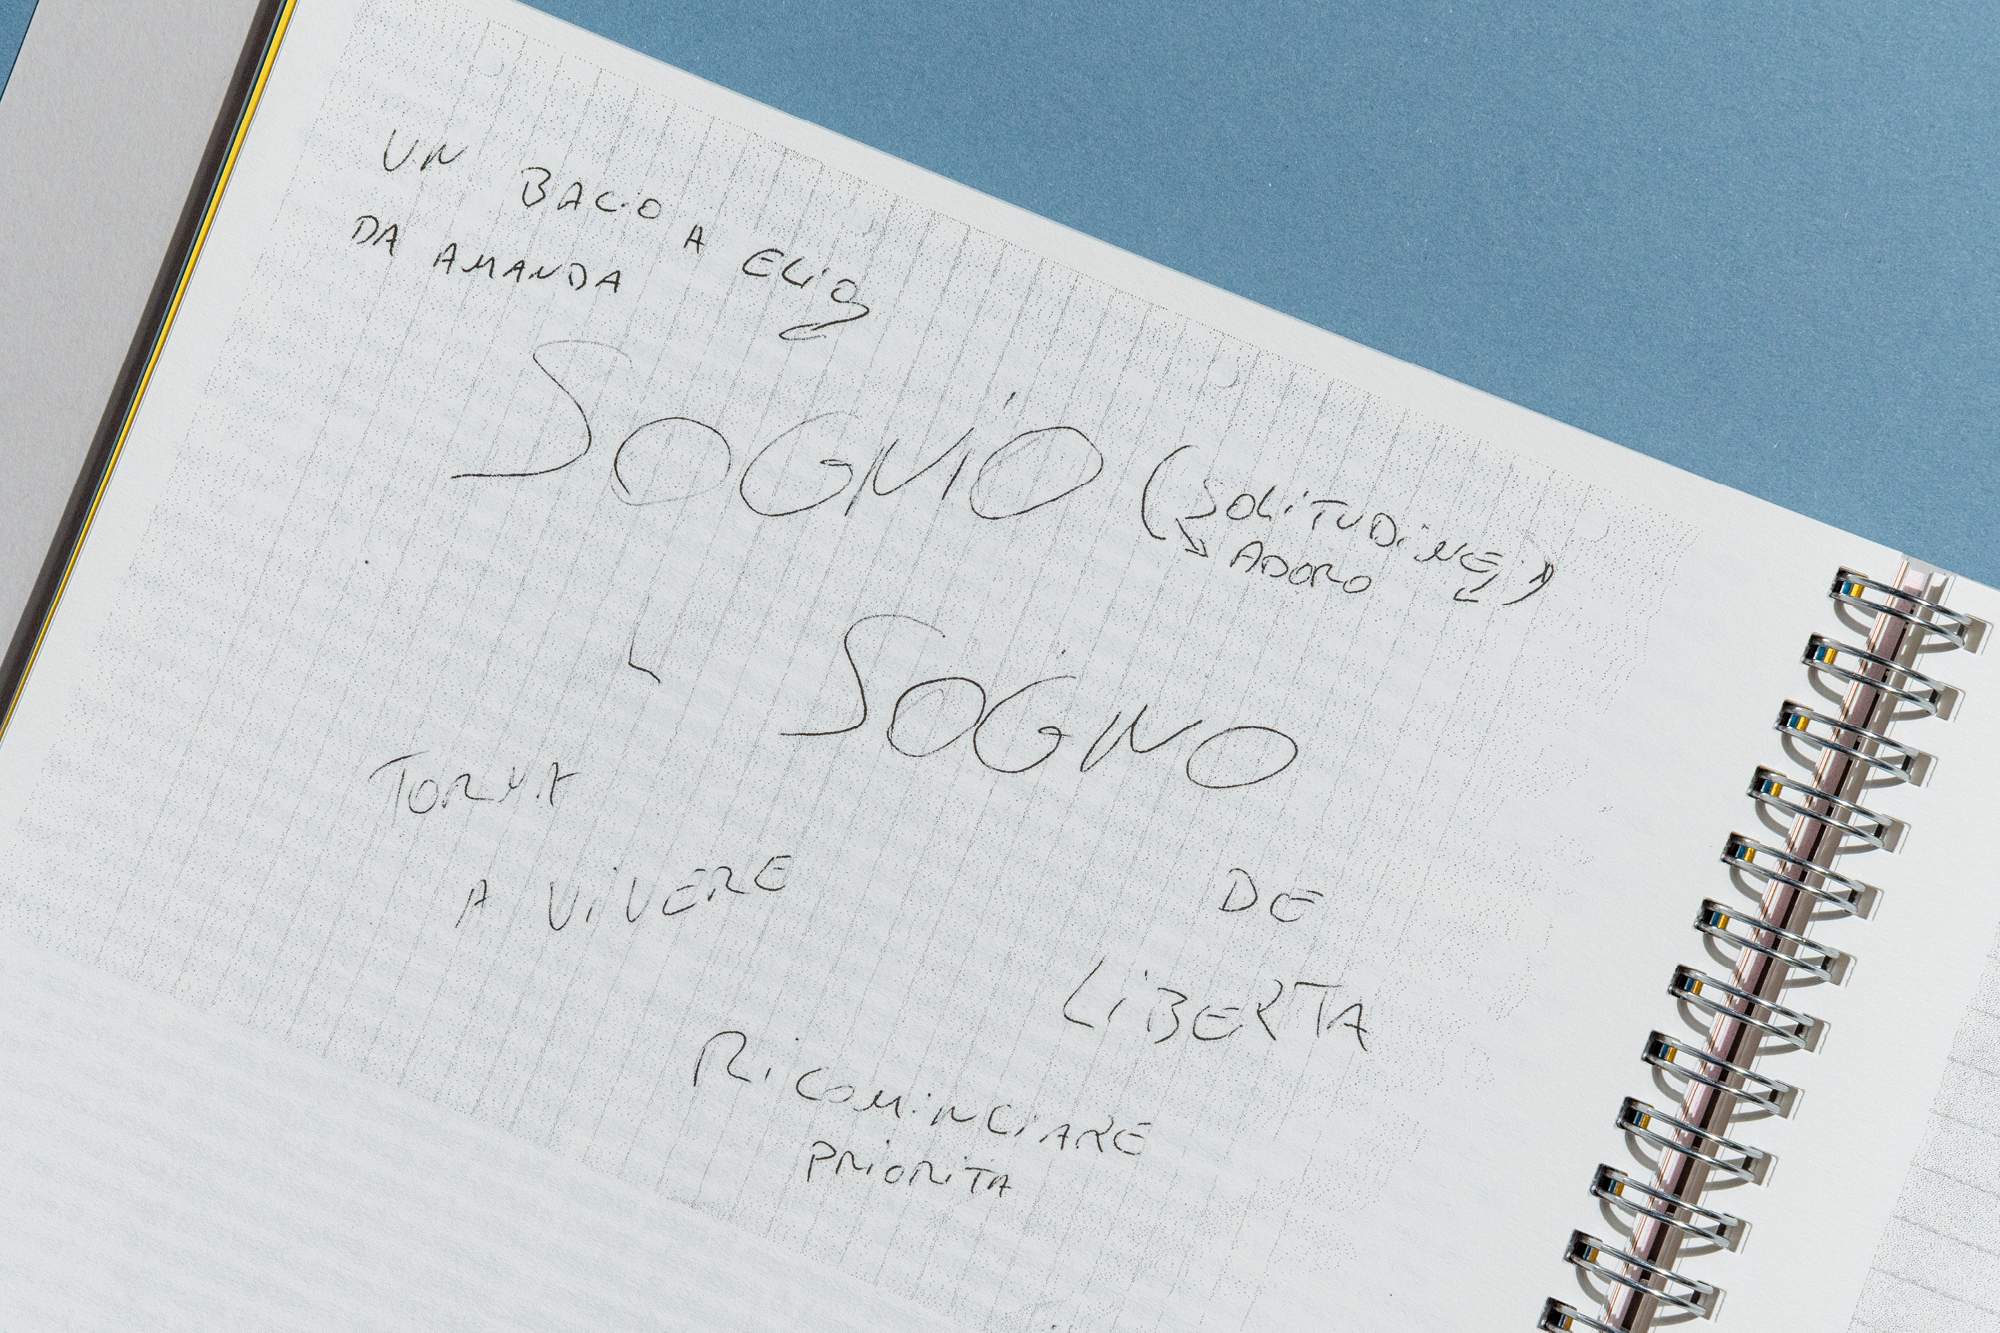 UN BACIO A ELIO
DA AMANDA
SOGNO (SOLITUDINE)
ADORO
SOGNO
TORNA
A VIVERE
DE
LIBERTA
RICOMINCIARE
PRIORITA